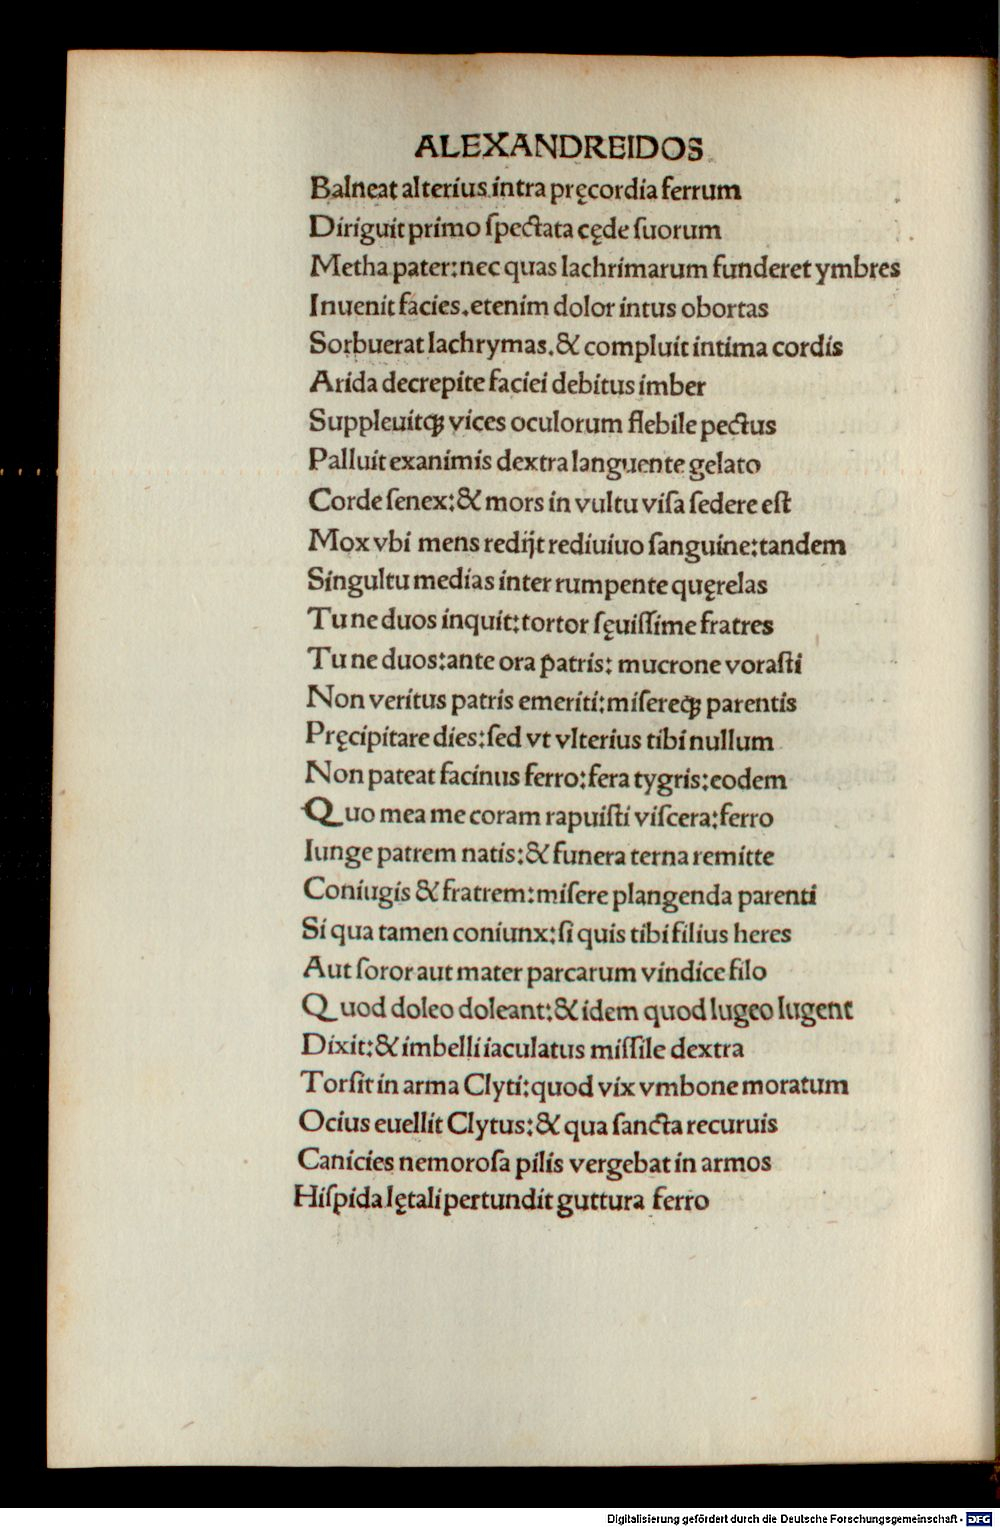 ALEXANDREIDOS
Balneat alterius intra pręcordia ferrum
Diriguit primo ſpectata cęde ſuorum
Metha pater: nec quas lachrimarum funderet ymbres
Inuenit facies. etenim dolor intus obortas
Sorbuerat lachrymas. & compluit intima cordis
Arida decrepite faciei debitus imber
Suppleuitqꝫ vices oculorum flebile pectus
Palluit exanimis dextra languente gelato
Corde ſenex: & mors in vultu viſa ſedere eſt
Mox vbi mens redijt rediuiuo ſanguine: tandem
Singultu medias inter rumpente quęrelas
Tu ne duos inquit: tortor ſęuiſſime fratres
Tu ne duos: ante ora patris: mucrone voraſti
Non veritus patris emeriti: miſereqꝫ parentis
Pręcipitare dies: ſed vt vlterius tibi nullum
Non pateat facinus ferro: fera tygris: eodem
Quo mea me coram rapuiſti viſcera: ferro
Iunge patrem natis: & funera terna remitte
Coniugis & fratrem: miſere plangenda parenti
Si qua tamen coniunx: ſi quis tibi filius heres
Aut ſoror aut mater parcarum vindice filo
Quod doleo doleant: & idem quod lugeo lugent
Dixit: & imbelli iaculatus miſſile dextra
Torſit in arma Clyti: quod vix vmbone moratum
Ocius euellit Clytus: & qua ſancta recuruis
Canicies nemoroſa pilis vergebat in armos
Hiſpida lętali pertundit guttura ferro
Digitalisierung gefördert durch die Deutsche Forschungsgemeinschaft - DFG